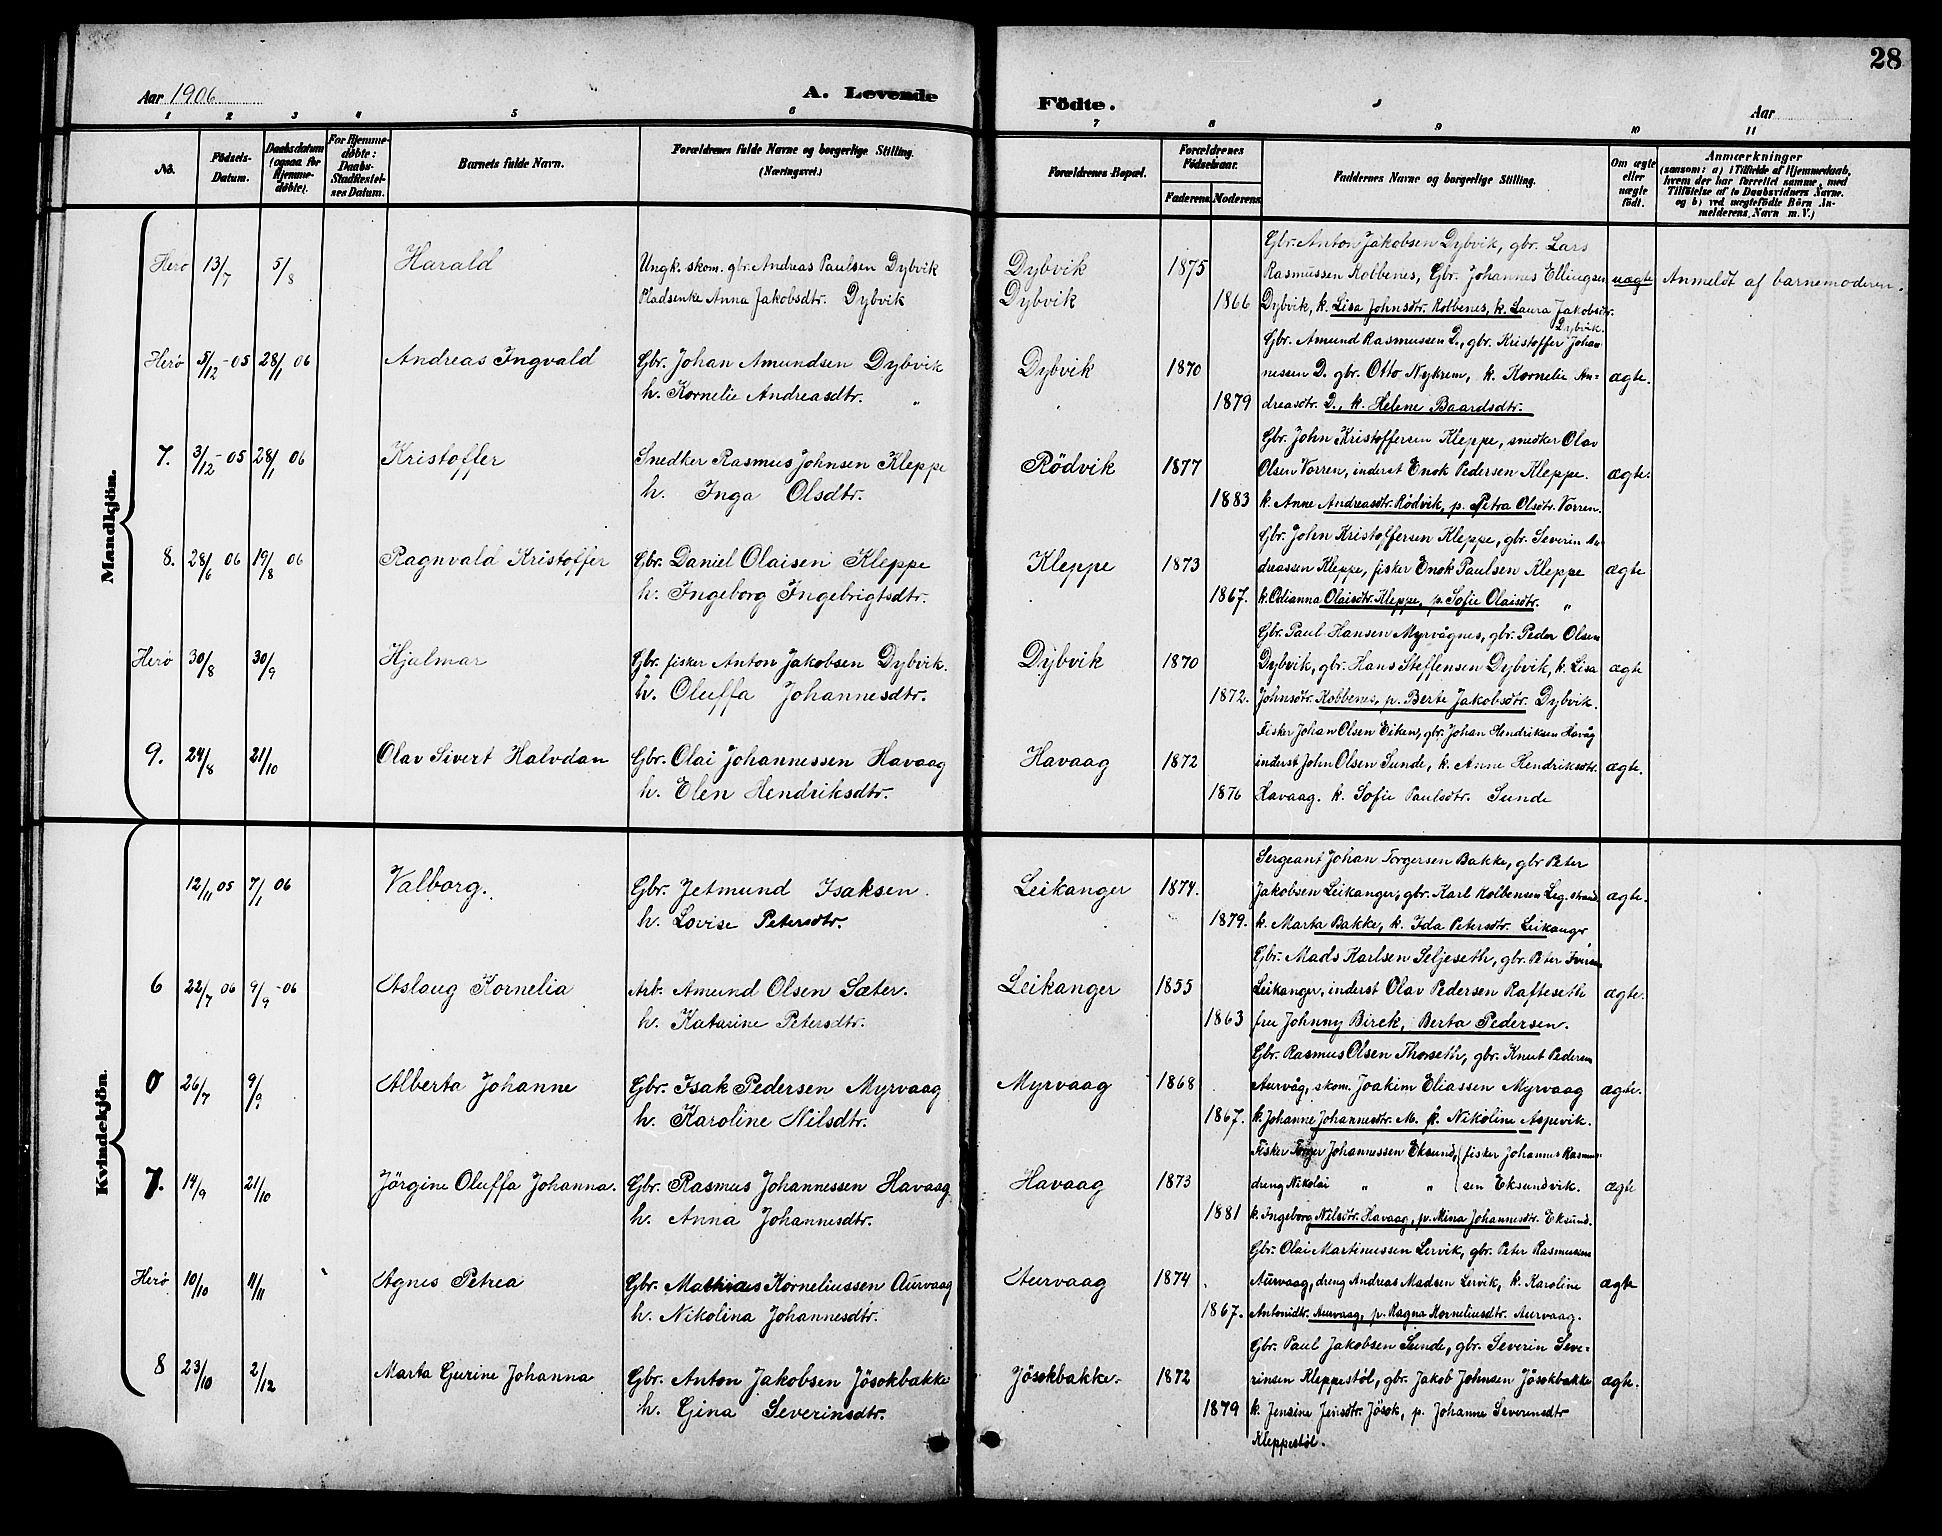 28
Aar 1906
A. Levende
Födte.
Aar
1 2 3 4 5 6 7 8 9 10 11
No.
Födsels-Datum.
Daabsdatum (ogsaa for Hjemme-döbte).
For Hjemme-döbte: Daabs-Stadfæstel-ses Datum.
Barnets fulde Navn.
Forældrenes fulde Navne og borgerlige Stilling. (Næringsvei.)
Forældrenes Bopæl.
Forældrenes Födselsaar.
Faderens. Moderens.
Faddernes Navne og borgerlige Stilling.
Om ægte eller uægte födt.
Anmærkninger
(saasom: a) i Tilfælde af Hjemmedaab,
hvem der har forrettet samme, med
Tilföielse af to Daabsvidners Navne.
og b) ved uægtefödte Börn An-
melderens Navn m. V.)
Mandkjön.
Gbr. Anton Jakobsen Dybvik, gbr. Lars
Herø 13/7 5/8 Harald Ungk. skom. gbr. Andreas Paulsen Dybvik Dybvik 1875 Rasmussen Kobbenes, Gbr. Johannes Ellingsen uægte Anmeldt af barnemoderen.
Pladsenke Anna Jakobsdtr. Dybvik Dybvik 1866 Dybvik, k. Lisa Johnsdtr. Kobbenes, k. Laura Jakobsdtr.
Dybvik.
Gbr. Amund Rasmussen D., gbr. Kristoffer Johan-
Herø 5/12-05 28/1 06 Andreas Ingvald Gbr. Johan Amundsen Dybvik Dybvik 1870 nessen D. gbr. Otto Nykrem, k. Kornelie An- ægte.
h. Kornelie Andreasdtr. " 1879 dreasdtr. D., k. Helene Baardsdtr.
Gbr. John Kristoffersen Kleppe, snedker Olav
7. 3/12-05 28/1 06 Kristoffer Snedker Rasmus Johnsen Kleppe Rödvik 1877 Olsen Vorren, inderst Enok Pedersen Kleppe. ægte.
h. Inga Olsdtr. 1883 k. Anne Andreasdtr. Rödvik, p. Petra Olsdtr. Vorren.
Gbr. John Kristoffersen Kleppe, gbr. Severin An-
8. 28/6 06 19/8 06 Ragnvald Kristoffer Gbr. Daniel Olaisen Kleppe Kleppe 1873 dreassen Kleppe, fisker Enok Paulsen Kleppe ægte
h. Ingeborg Ingebrigtsdtr. 1867. k. Olianna Olaisdtr. Kleppe, p. Sofie Olaisdtr. "
Gbr. Paul Hansen Myrvågnes, gbr. Peder Olsen
Herø 30/8 30/9 Hjalmar Gbr. fisker Anton Jakobsen Dybvik. Dybvik 1870 Dybvik, gbr. Hans Steffensen Dybvik, k. Lisa ægte
h. Oluffa Johannesdtr. 1872. Johnsdtr. Kobbenes, p. Berte Jakobsdtr. Dybvik.
Fisker Johan Olsen Eiken, gbr. Johan Hendriksen Havåg
9. 24/8 21/10 Olav Sivert Halvdan Gbr. Olai Johannessen Havaag Havaag 1872 inderst John Olsen Sunde, k. Anne Hendriksdtr. ægte.
h. Elen Hendriksdtr. 1876 Havaag. k. Sofie Paulsdtr. Sunde
Kvindekjön.
Sergeant Johan Torgersen Bakke, gbr Peter
12/11 05 7/1 06 Valborg. Gbr. Jetmund Isaksen. Leikanger 1874. Jakobsen Leikanger, gbr. Karl Kolbensen Leg. strand ægte.
h. Lovise Petersdtr. 1879. k. Marta Bakke, k. Ida Petersdtr. Leikanger
Gbr. Mads Karlsen Seljeseth, gbr. Peter Iversen
6 22/7 06 9/9-06 Aslaug Kornelia Arb. Amund Olsen Sæter. Leikanger 1855 Leikanger, inderst Olav Pedersen Rafteseth ægte.
h. Katarine Petersdtr. 1863 fru Johnny Birek, Berta Pedersen.
Gbr. Rasmus Olsen Thorseth, gbr. Knut Pedersen
0 26/7 9/9 Alberta Johanne Gbr. Isak Pedersen Myrvaag Myrvaag 1868 Aurvåg, skom. Joakim Eliassen Myrvaag ægte.
h. Karoline Nilsdtr. 1867. k. Johanne Johannesdtr. M. k. Nikoline Aspevik.
Fisker Torger Johannessen Eksund, fisker Johannes Rasmus-
7. 14/9 21/10 Jörgine Oluffa Johanna. Gbr. Rasmus Johannessen Havaag Havaag 1873 dreng Nikolai " " sen Eksundvik. ægte
h. Anna Johannesdtr. 1881 k. Ingeborg Nilsdtr. Havaag, p. Mina Johannesdtr. Eksund.
Gbr. Olai Martinussen Lervik, gbr. Peter Rasmussen
Herø 10/10 11/11 Agnes Petrea Gbr. Mathias Korneliussen Aurvaag Aurvaag 1874 Aurvaag, dreng Andreas Madsen Lervik, k. Karoline ægte
h. Nikolina Johannesdtr. 1867. Antonidtr. Aurvaag, p. Ragna Korneliusdtr. Aurvaag.
Gbr. Paul Jakobsen Sunde, gbr. Severin Seve-
8 23/10 2/12 Marta Gurine Johanna Gbr. Anton Jakobsen Jösokbakke Jösokbakke. 1872 rinsen Kleppestöl, gbr. Jakob Johnsen Jösokbakke ægte.
h. Gina Severinsdtr. 1879 k. Jensine Jensdtr. Jösok, p. Johanne Severensdtr
Kleppestöl.